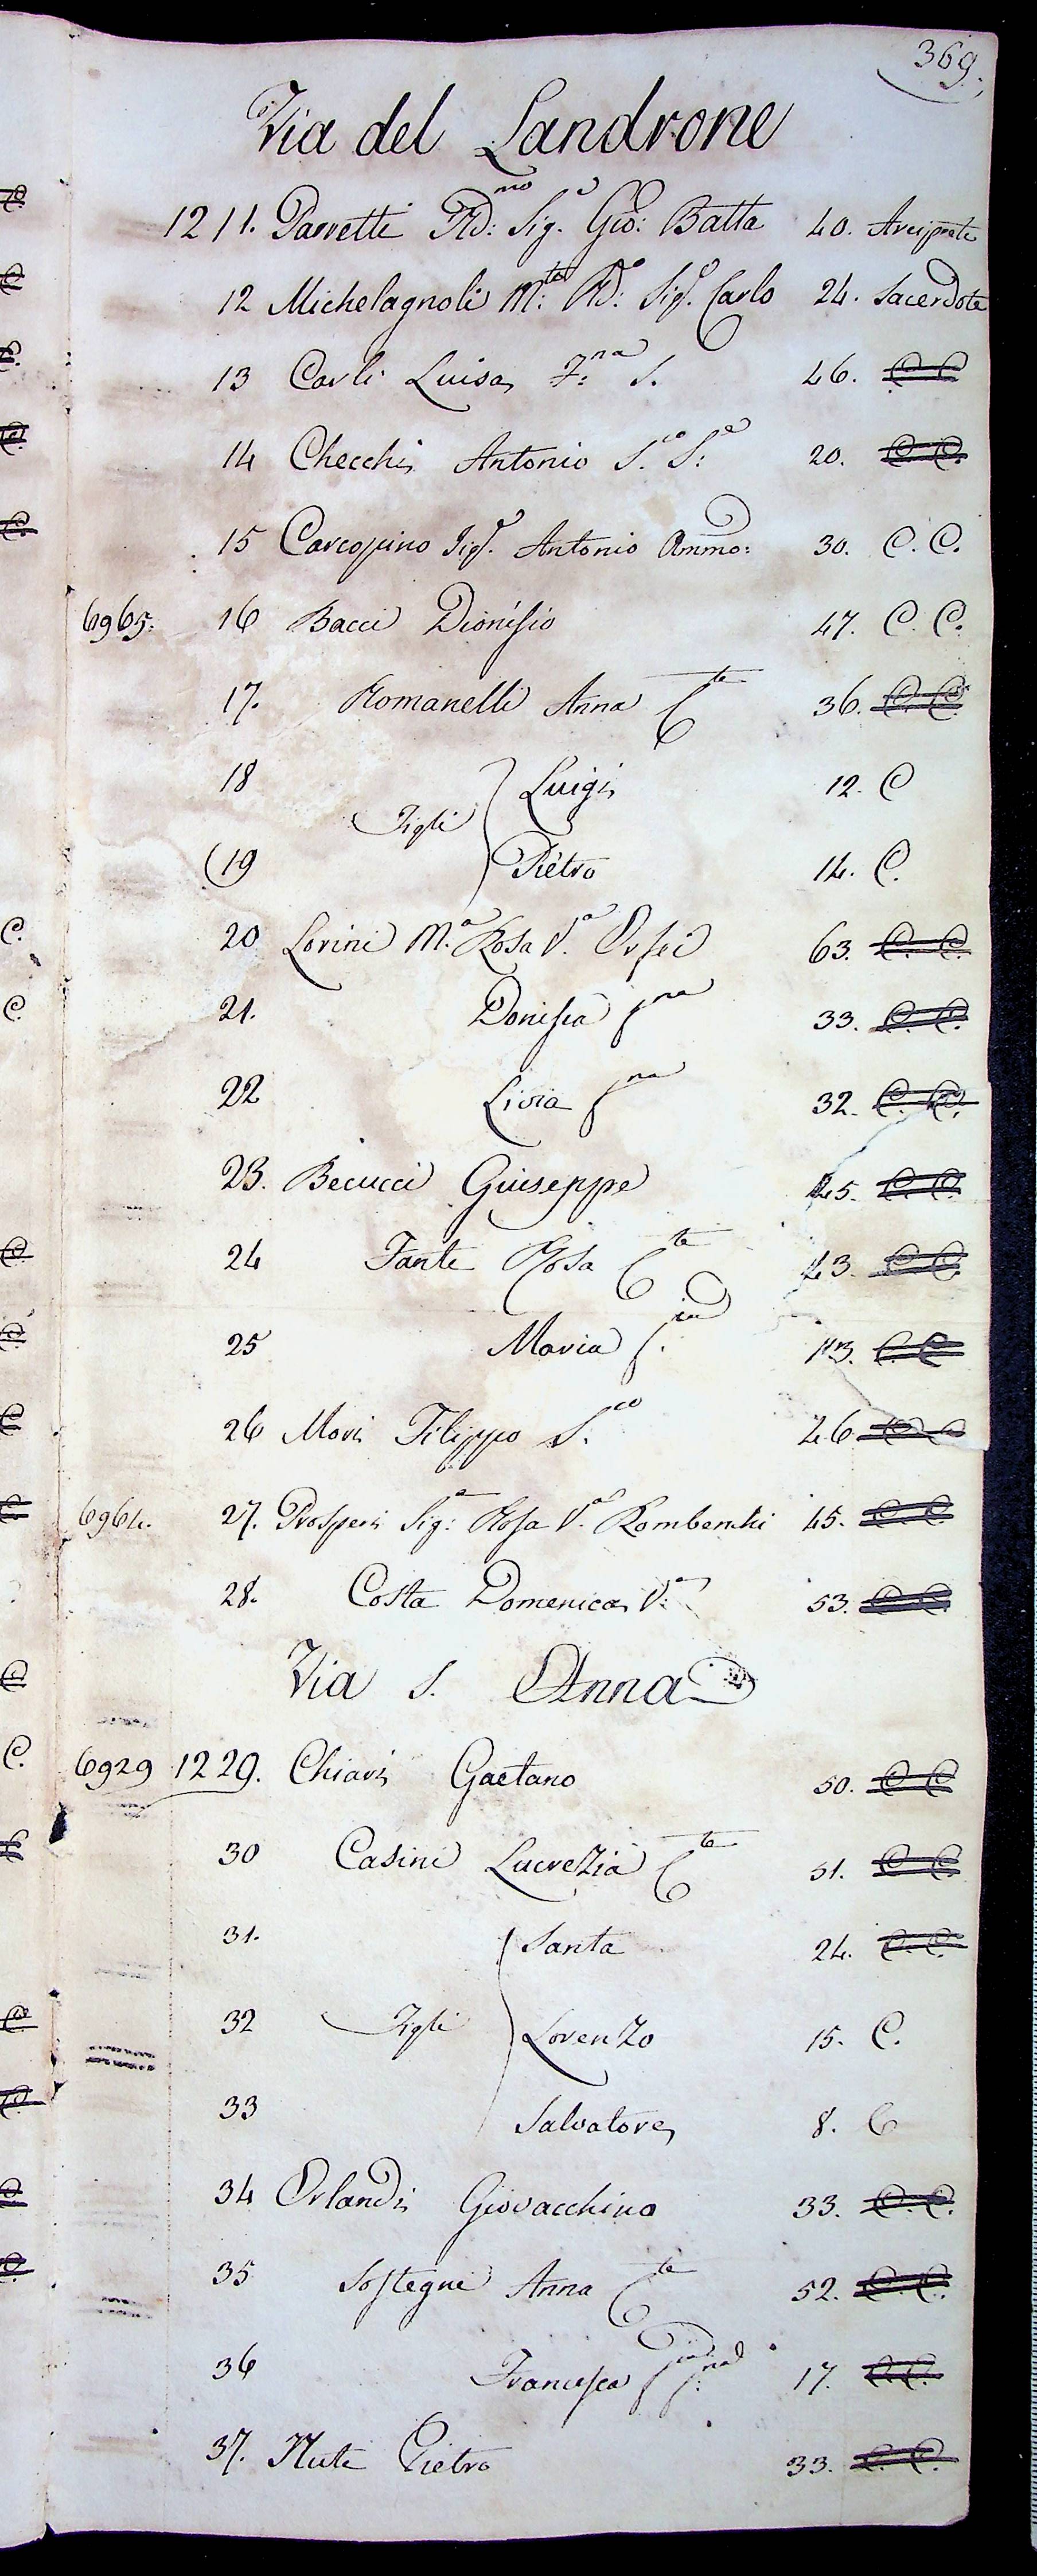 369.
Via del Landrone
1211. Parretti Rd:mo Sig.e Gio: Batta 40. Arciprete
12 Michelagnoli M:to Rd:o Sig.e Carlo 24. Sacerdote
13 Carli Luisa F:na S. 46. C. C.
14 Checchi Antonio S.co S:e 20. C. C.
15 Carcopino Sig.e Antonio Ammo: 30. C. C.
6965. 16 Bacci Dionisio 47. C. C.
17. Romanelli Anna Cte 36. C. C.
18 Luigi 12. C
Figli
19 Pietro 14. C.
20 Lorini M.a Rosa V.a Orsei 63. C. C.
21. Donisia fna 33. C. C.
22 Livia fna 32. C. C.
23. Becucci Giuseppe 45. C. C.
24 Fanti Rosa Cte 43. C. C.
25 Maria f.ia C. C.
26 Mori Filippo S.co 26. C. C.
6964. 27. Prosperi Sig:a Rosa V.a Rombenchi 45. C. C.
28. Costa Domenica V:a 53. C. C.
Via S. Anna
6929 1229. Chiari Gaetano 50. C. C.
30 Casini Lucrezia Cte 51. C. C.
31. Santa 24. C. C.
32 Figli Lorenzo 15. C.
33 Salvatore 8. C
34 Orlandi Giovacchino 33. C. C.
35 Sostegni Anna Cte 52. C. C.
36 Francesca fia f:na 17. C. C.
37. Nuti Pietro 33. C. C.